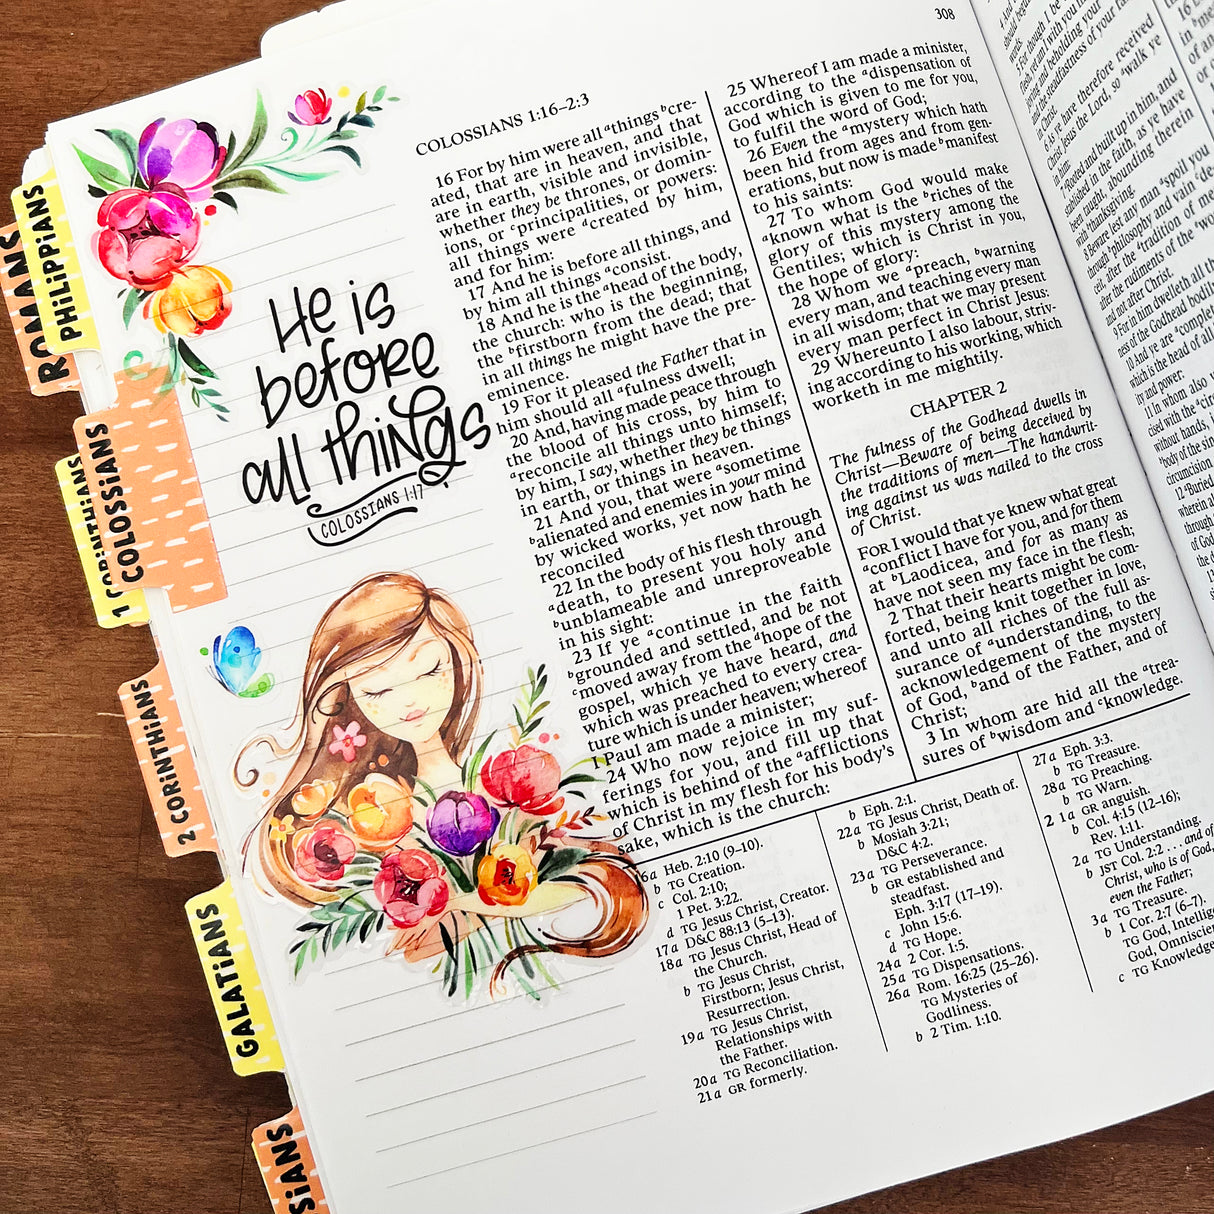 308
COLOSSIANS 1:16–2:3
16 For by him were all ᵃthings ᵇcre-
ated, that are in heaven, and that
are in earth, visible and invisible,
whether they be thrones, or domin-
ions, or ᶜprincipalities, or powers:
all things were ᵈcreated by him,
and for him:
17 And he is before all things, and
by him all things ᵃconsist.
18 And he is the ᵃhead of the body,
the church: who is the beginning,
the ᵇfirstborn from the dead; that
in all things he might have the pre-
eminence.
19 For it pleased the Father that in
him should all ᵃfulness dwell;
20 And, having made peace through
the blood of his cross, by him to
ᵃreconcile all things unto himself;
by him, I say, whether they be things
in earth, or things in heaven.
21 And you, that were ᵃsometime
ᵇalienated and enemies in your mind
by wicked works, yet now hath he
reconciled
22 In the body of his flesh through
ᵃdeath, to present you holy and
ᵇunblameable and unreproveable
in his sight:
23 If ye ᵃcontinue in the faith
ᵇgrounded and settled, and be not
ᶜmoved away from the ᵈhope of the
gospel, which ye have heard, and
which was preached to every crea-
ture which is under heaven; whereof
I Paul am made a minister;
24 Who now rejoice in my suf-
ferings for you, and fill up that
which is behind of the ᵃafflictions
of Christ in my flesh for his body's
sake, which is the church:
25 Whereof I am made a minister,
according to the ᵃdispensation of
God which is given to me for you,
to fulfil the word of God;
26 Even the ᵃmystery which hath
been hid from ages and from gen-
erations, but now is made ᵇmanifest
to his saints:
27 To whom God would make
ᵃknown what is the ᵇriches of the
glory of this mystery among the
Gentiles; which is Christ in you,
the hope of glory:
28 Whom we ᵃpreach, ᵇwarning
every man, and teaching every man
in all wisdom; that we may present
every man perfect in Christ Jesus:
29 Whereunto I also labour, striv-
ing according to his working, which
worketh in me mightily.
CHAPTER 2
The fulness of the Godhead dwells in
Christ—Beware of being deceived by
the traditions of men—The handwrit-
ing against us was nailed to the cross
of Christ.
FOR I would that ye knew what great
ᵃconflict I have for you, and for them
at ᵇLaodicea, and for as many as
have not seen my face in the flesh;
2 That their hearts might be com-
forted, being knit together in love,
and unto all riches of the full as-
surance of ᵃunderstanding, to the
acknowledgement of the mystery
of God, ᵇand of the Father, and of
Christ;
3 In whom are hid all the ᵃtrea-
sures of ᵇwisdom and ᶜknowledge.
16a Heb. 2:10 (9–10).
b TG Creation.
c Col. 2:10;
1 Pet. 3:22.
d TG Jesus Christ, Creator.
17a D&C 88:13 (5–13).
18a TG Jesus Christ, Head of
the Church.
b TG Jesus Christ,
Firstborn; Jesus Christ,
Resurrection.
19a TG Jesus Christ,
Relationships with
the Father.
20a TG Reconciliation.
21a GR formerly.
b Eph. 2:1.
22a TG Jesus Christ, Death of.
b Mosiah 3:21;
D&C 4:2.
23a TG Perseverance.
b GR established and
steadfast.
Eph. 3:17 (17–19).
c John 15:6.
d TG Hope.
24a 2 Cor. 1:5.
25a TG Dispensations.
26a Rom. 16:25 (25–26).
TG Mysteries of
Godliness.
b 2 Tim. 1:10.
27a Eph. 3:3.
b TG Treasure.
28a TG Preaching.
b TG Warn.
2 1a GR anguish.
b Col. 4:15 (12–16);
Rev. 1:11.
2a TG Understanding.
b JST Col. 2:2 . . . and of
Christ, who is of God,
even the Father;
3a TG Treasure.
b 1 Cor. 2:7 (6–7).
TG God, Intellig
God, Omniscien
c TG Knowledge
He is
before
all things
COLOSSIANS 1:17
ROMANS
PHILIPPIANS
1 CORINTHIANS
COLOSSIANS
2 CORINTHIANS
GALATIANS
SIANS